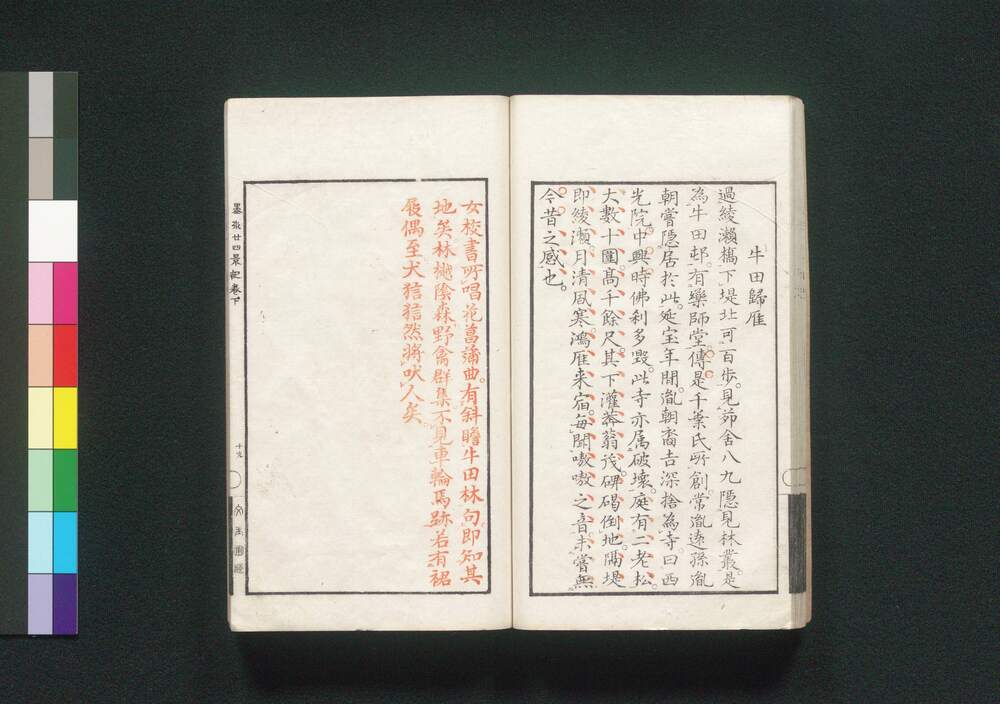 牛田歸雁
過綾瀬橋下堤址可百歩。見茆舎八九隠見林叢。是
為牛田邨。有藥師堂。傳是千葉氏所創。常胤遠孫胤
朝嘗隠居於此。延宝年間。胤朝裔吉深捨為寺曰西
光院。中興時佛刹多毀。此寺亦属破壊。庭有二老松。
大数十圍。髙千餘尺。其下灌莽翁茂。碑碣倒地。隔堤
即綾瀬。月清風寒。鴻雁来宿。毎聞嗷嗷之音。未嘗無
今昔之感也。
女校書所唱花菖蒲曲。有斜瞻牛田林句。即知其
地矣。林樾陰森。野禽群集。不見車輪馬跡。若有裙
屐偶至。犬狺狺然将吠人矣。
墨水廿四景記巻下
十九